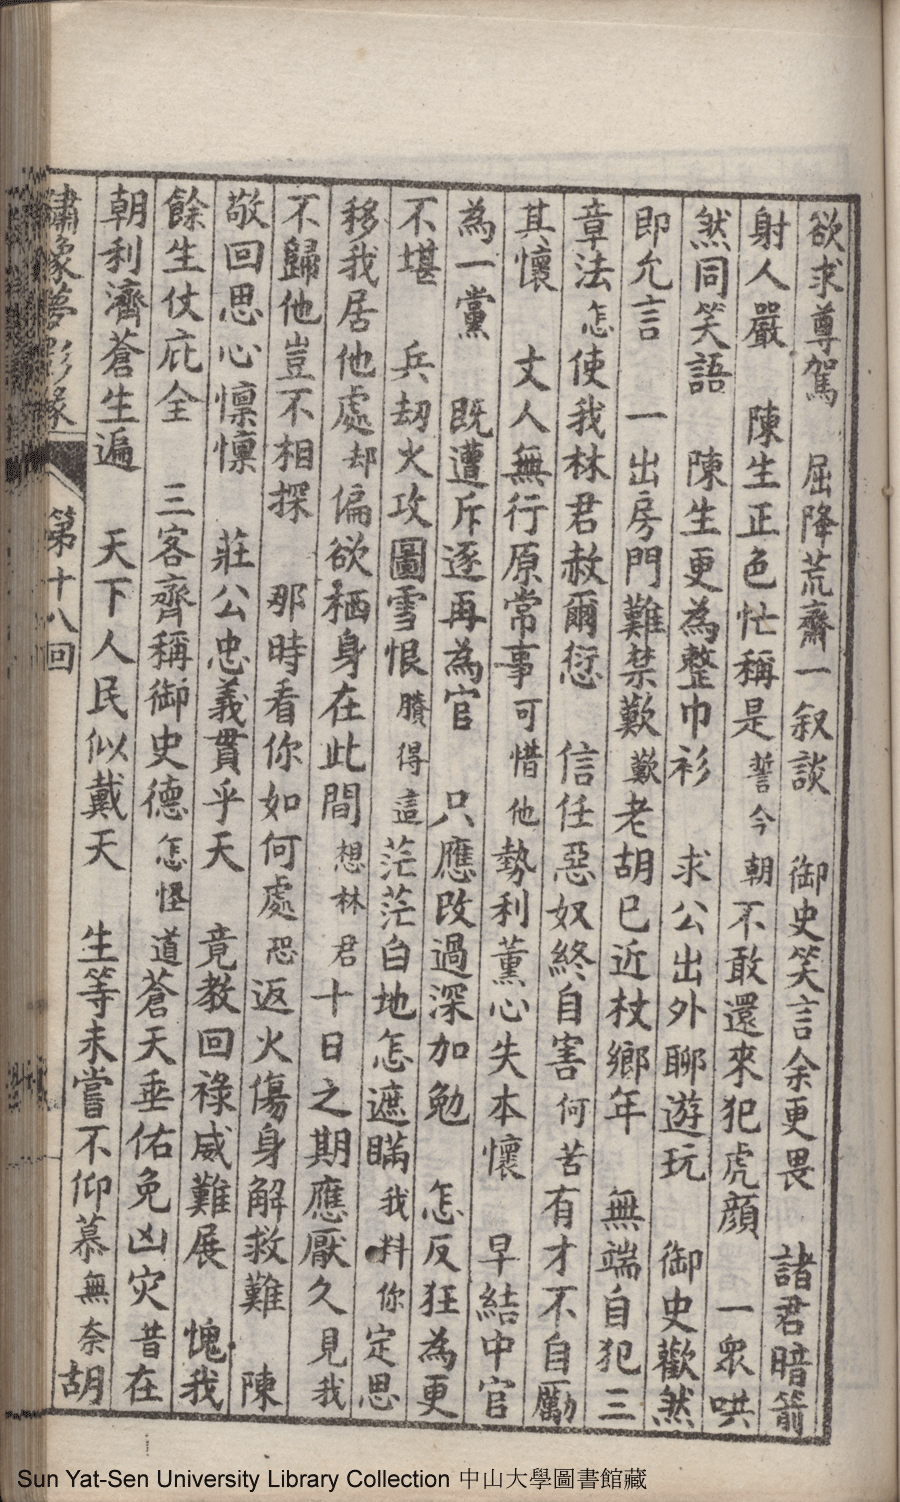 欲求尊駕　屈降荒齋一叙談　御史笑言余更畏　諸君暗箭
射人嚴　陳生正色忙稱是誓今朝不敢還來犯虎顏　一衆哄
然同笑語　陳生更為整巾衫　求公出外聊遊玩　御史歡然
即允言　一出房門難禁歎歎老胡已近杖鄉年　無端自犯三
章法怎使我林君赦爾愆　信任惡奴終自害何苦有才不自勵
其懷　丈人無行原常事可惜他勢利薰心失本懷　早結中官
為一黨　既遭斥逐再為官　只應改過深加勉　怎反狂為更
不堪　兵刼火攻圖雪恨賸得這茫茫白地怎遮瞞我料你定思
移我居他處却偏欲栖身在此間想林君十日之期應厭久見我
不歸他豈不相探　那時看你如何處恐返火傷身解救難　陳
敬回思心懍懍　莊公忠義貫乎天　竟教回祿威難展　愧我
餘生仗庇全　三客齊稱御史德怎怪道蒼天垂佑免凶灾昔在
朝利濟蒼生遍　天下人民似戴天　生等未嘗不仰慕無奈胡
繡像夢影緣　第十八回
Sun Yat-Sen University Library Collection 中山大學圖書館藏